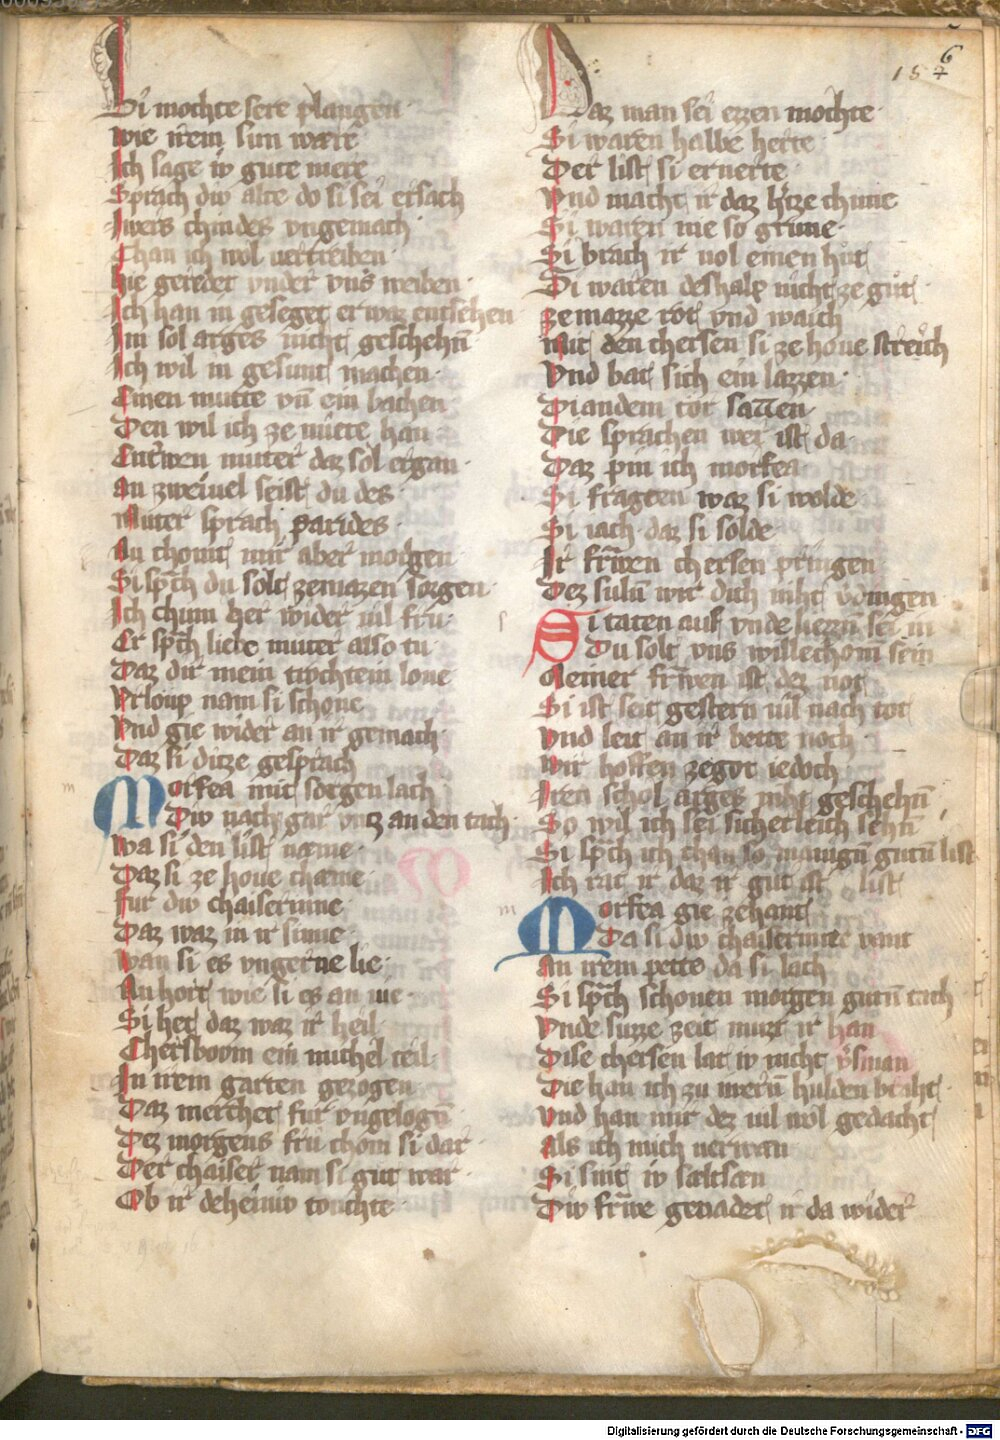 157
6
Di mochte sere plangen
wie irem sun wære
Ich sage iv gute mere
Sprach div alte do si sei ersach
Iwers chindes vngemach
Chan ich wol vertreiben
hie geredet vnder vns weiben
Ich han in geseget er waz entsehen
Im sol arges nicht geschehn̄
Ich wil in gesunt machen
Einen mutte vn̄ ein bachen
Den wil ich ze miete han
Entrwen muter daz sol ergan
An zweiuel seist du des
Muter sprach parides
Nu chomt mir aber morgen
Si sp͛ch du solt zemazen sorgen
Ich chum her wider vil fru
Er sp͛ch liebe muter also tu
Daz dir mein trechtein lone
Vrloup nam si schone
Vnd gie wider an ir gemach
Daz si ditze gesprach
m
Morfea mit sorgen lach
Div nacht gar vntz an den tach
wa si den list næme
Daz si ze houe chæme
fur div chaiserinne
Daz waz in ir sinne
wan si es vngerne lie
Nu hort wie si es an vie
Si het daz waz ir heil
Chersboom ein michel teil
In irem garten gezogen
Daz merchet fur vngelogn̄
Dez morgens fru chom si dar
Der chaiser nam si gut war
Ob ir deheiniv tovchte
Daz man sei ezzen mochte
Si waren halbe herte
Der list si ernerte
Vnd macht ir daz h͛tze chune
Si waren nie so grune
Si brach ir vol einen hůt
Di waren deshalp nicht ze gůt
ze mazze rot vnd waich
Mit den chersen si ze houe streich
Vnd bat sich ein lazzen
Di an dem tor sazzen
Die sprachen wer ist da
Daz pin ich morfea
Si fragten waz si wolde
Si iach daz si solde
Ir frǒwen chersen pringen
Dez suln̄ wir dich niht v͛dringen
Si taten auf vnde liezzn̄ sei in
Du solt vns willechom sein
Meiner frǒwen ist dez not
Si ist seit gestern vil nach tot
Vnd leit an ir bette noch
Wir hoffen ze got iedoch
Iren schol arges niht geschehn̄
So wil ich sei sicherleich sehn̄
Si sp͛ch ich chan so manign̄ gutn̄ list
Ich rat ir daz ir gut ist list
m
Morfea gie zehant
Da si div chaiserinne vant
An irem pette da si lach
Si sp͛ch schonen morgen gutn̄ tach
Vnde suzze zeit muzt ir han
Dise chersen lat iv nicht v͛sman
Die han ich zu iwern̄ hulden braht
Vnd han mir dez vil wol gedacht
Als ich mich verwan
Si sint iv sæltsæn
Div frǒwe genadet ir da wider
Digitalisierung gefördert durch die Deutsche Forschungsgemeinschaft - DFG